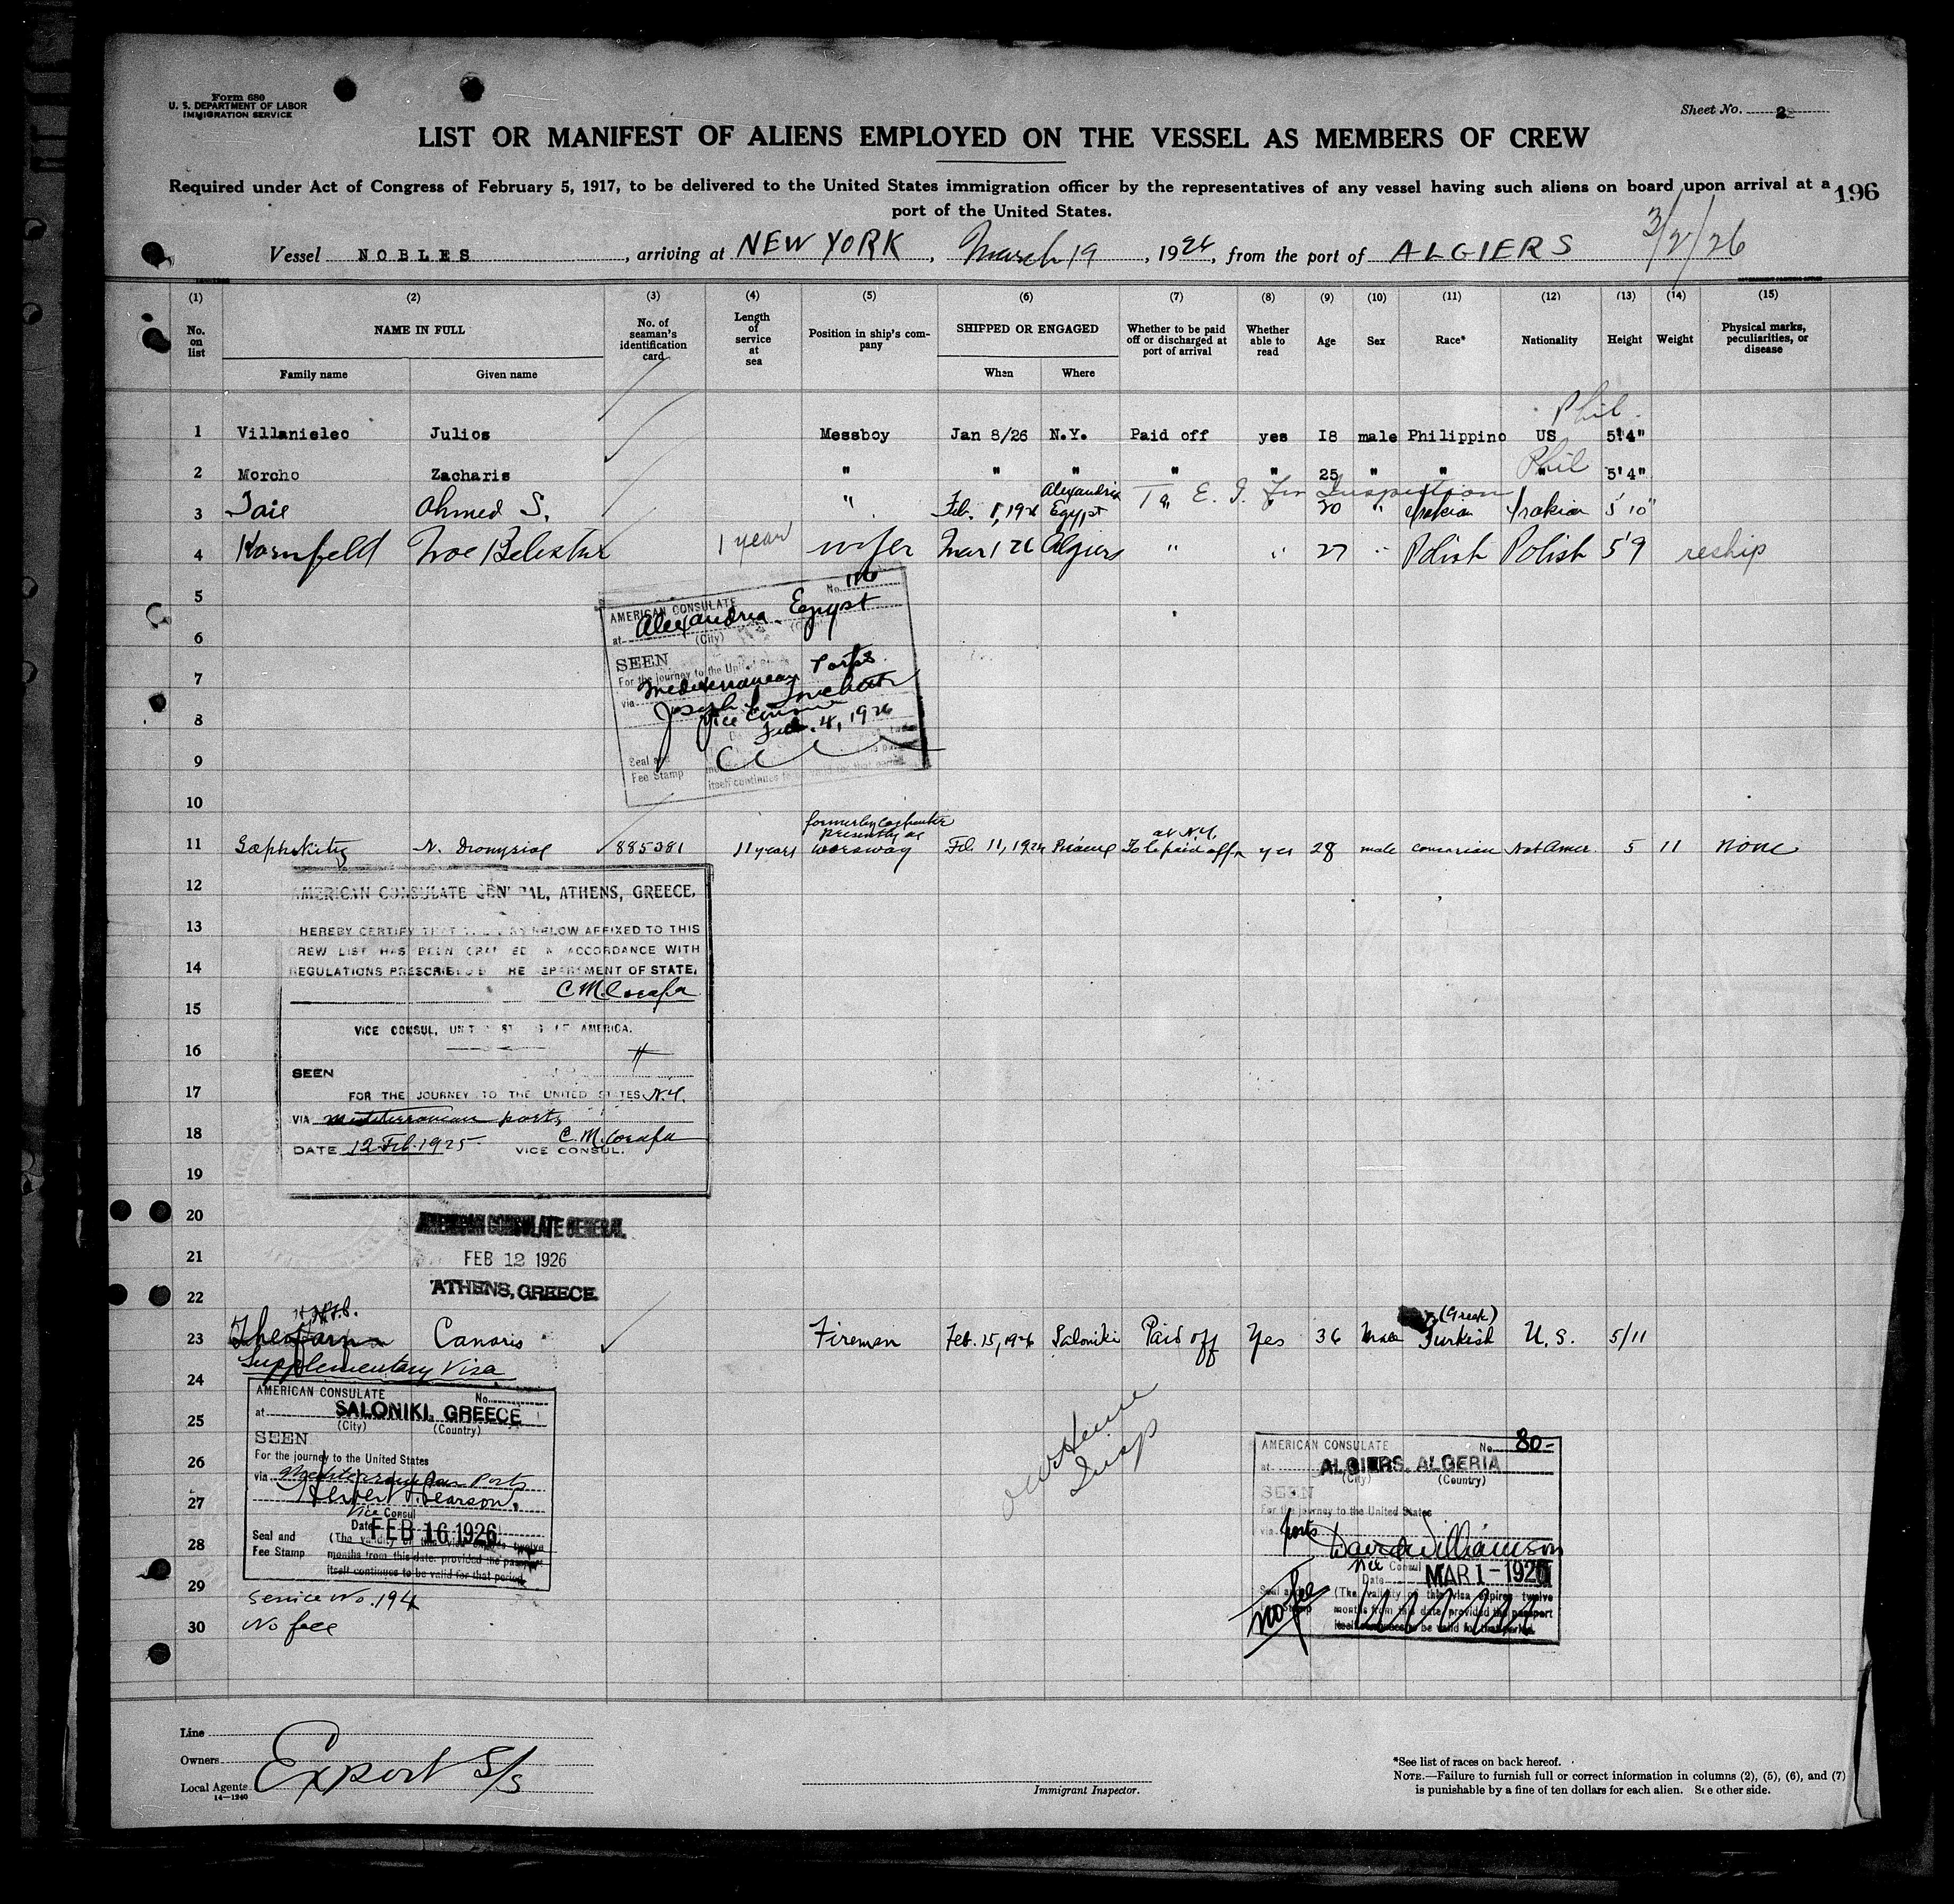 Form 680
U. S. DEPARTMENT OF LABOR
IMMIGRATION SERVICE
Sheet No. 2
LIST OR MANIFEST OF ALIENS EMPLOYED ON THE VESSEL AS MEMBERS OF CREW
Required under Act of Congress of February 5, 1917, to be delivered to the United States immigration officer by the representatives of any vessel having such aliens on board upon arrival at a
port of the United States.
196
3/2/26
Vessel NOBLES, arriving at NEW YORK, March 19, 1926, from the port of ALGIERS
(1) (2) (3) (4) (5) (6) (7) (8) (9) (10) (11) (12) (13) (14) (15)
No. on list
NAME IN FULL
Family name
Given name
No. of seaman's identification card
Length of service at sea
Position in ship's company
SHIPPED OR ENGAGED
When
Where
Whether to be paid off or discharged at port of arrival
Whether able to read
Age
Sex
Race*
Nationality
Height
Weight
Physical marks, peculiarities, or disease
Phil.
1 Villanieleo Julios Messboy Jan 8/26 N.Y. Paid off yes 18 male Philippino US 5'4"
2 Morcho Zacharis " " " " " 25 " " Phil 5'4"
To E. I. for Inspection
3 Taie Ahmed S. " Feb. 1, 1926 Alexandria Egypt " " 20 " Irakian Irakian 5'10"
4 Kornfeld 1 year Mar 1 26 Algiers " " 27 " Polish Polish 5'9 reship
5
6
7
8
9
10
AMERICAN CONSULATE No. 116
at Alexandria Egypt
(City)
SEEN
For the journey to the United States
via Mediterranean Ports
Joseph
Vice Consul
Feb. 4, 1926
Seal and
Fee Stamp
itself continues to be valid for that period
formerly
presently as
at N.Y.
11 N. 885381 11 years Feb 11, 1926 To be paid off yes 28 male Not Amer. 5 11 none
12
13
14
15
16
17
18
19
20
21
22
AMERICAN CONSULATE GENERAL, ATHENS, GREECE.
I HEREBY CERTIFY THAT THE VISA BELOW AFFIXED TO THIS
CREW LIST HAS BEEN GRANTED IN ACCORDANCE WITH
REGULATIONS PRESCRIBED BY THE DEPARTMENT OF STATE.
C. M. Corafa
VICE CONSUL, UNITED STATES OF AMERICA.
SEEN
FOR THE JOURNEY TO THE UNITED STATES N.Y.
VIA Mediterranean ports
DATE 12 Feb. 1925 C. M. Corafa
VICE CONSUL.
AMERICAN CONSULATE GENERAL
FEB 12 1926
ATHENS, GREECE.
23 Canaris Fireman Feb. 15, 1926 Saloniki Paid off Yes 36 Male (Greek) Turkish U. S. 5/11
Supplementary Visa
24
25
26
27
28
29
30
AMERICAN CONSULATE No.
at SALONIKI, GREECE
(City) (Country)
SEEN
For the journey to the United States
via Mediterranean Ports
Herbert Pearson,
Vice Consul
Date FEB 16 1926
Seal and
Fee Stamp
(The validity of this visa expires twelve
months from this date provided the passport
itself continues to be valid for that period
Service No. 194
No fee
Insp
AMERICAN CONSULATE No. 80-
at ALGIERS, ALGERIA
(City) (Country)
SEEN
For the journey to the United States
via ports
David Williamson
Vice Consul
Date MAR 1-1926
Seal and
Stamp
no fee
(The validity of this visa expires twelve
months from this date, provided the passport
itself continues to be valid for that period.
Line
Owners
Local Agents
Export S/S
14—1240
Immigrant Inspector.
*See list of races on back hereof.
NOTE.—Failure to furnish full or correct information in columns (2), (5), (6), and (7)
is punishable by a fine of ten dollars for each alien. See other side.